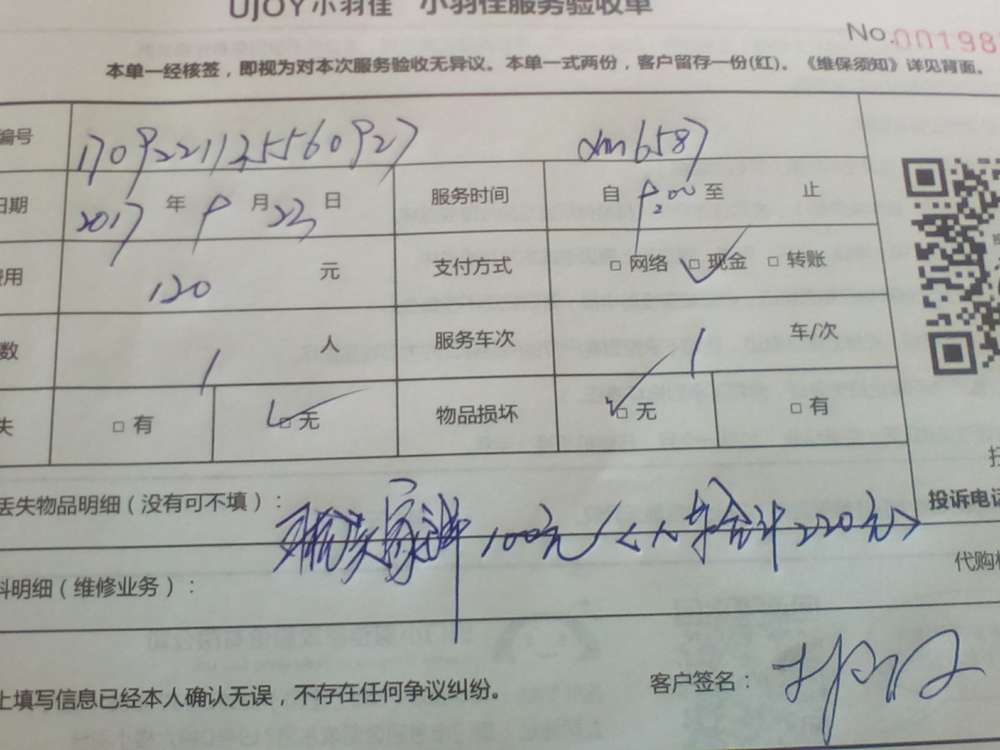 UJOY小羽佳 小羽佳服务验收单
No.00198
本单一经核签，即视为对本次服务验收无异议。本单一式两份，客户留存一份(红)。《维保须知》详见背面。
编号 170922112556 0927 dm6587
日期 2017 年 9 月 23 日 服务时间 自 9:00 至 止
费用 120 元 支付方式 □ 网络 □ 现金 □ 转账
数 1 人 服务车次 1 车/次
失 □ 有 □ 无 物品损坏 □ 无 □ 有
丢失物品明细（没有可不填）：
100元/〈人 合计220元〉
料明细（维修业务）：
投诉电话
代购
上填写信息已经本人确认无误，不存在任何争议纠纷。
客户签名：